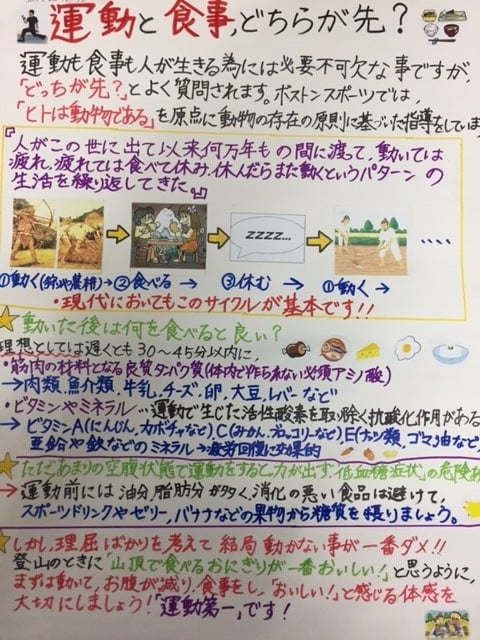 運動と食事,どちらが先？
運動も食事も人が生きる為には必要不可欠な事ですが,
「どっちが先？」とよく質問されます。ボストンスポーツでは,
「ヒトは動物である」を原点に動物の存在の原則に基づいた指導をしていま
『人がこの世に出て以来何万年もの間に渡って,動いては
疲れ,疲れては食べて休み,休んだらまた動くというパターンの
生活を繰り返してきた。』
zzzz...
①動く(狩や農耕)→②食べる→ ③休む → ①動く→
・現代においてもこのサイクルが基本です!!
動いた後は何を食べると良い？
理想としては遅くとも30～45分以内に,
・筋肉の材料となる良質タンパク質(体内で作られない必須アミノ酸)
→肉類,魚介類,牛乳,チーズ,卵,大豆,レバーなど
・ビタミンやミネラル…運動で生じた活性酸素を取り除く抗酸化作用がある
→ビタミンA(にんじん,カボチャなど),C(みかん,ブロッコリーなど),E(ナッツ類,ゴマ油など),
亜鉛や鉄などのミネラル→疲労回復に効果的
ただあまりの空腹状態で運動をすると,力が出ず,「低血糖症状」の危険が
→運動前には油分,脂肪分が多く,消化の悪い食品は避けて,
スポーツドリンクやゼリー,バナナなどの果物から糖質を摂りましょう。
しかし,理屈ばかりを考えて結局動かない事が一番ダメ!!
登山のときに「山頂で食べるおにぎりが一番おいしい!」と思うように,
まずは動いて,お腹が減り,食事をし,「おいしい!」と感じる体感を
大切にしましょう!「運動第一」です!